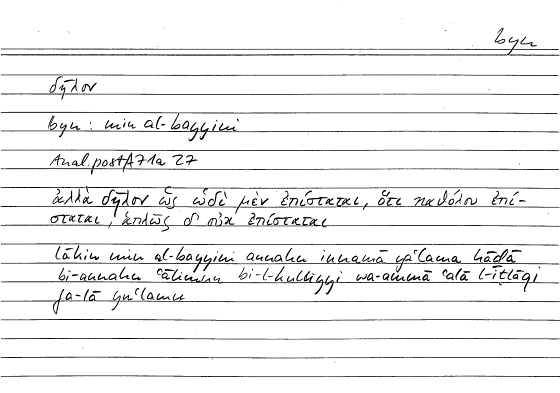 byn
δῆλον
byn : min al-bayyini
Anal. post A 71a 27
ἀλλὰ δῆλον ὡς ὡδὶ μὲν ἐπίσταται, ὅτι καθόλου ἐπί-
σταται, ἁπλῶς δ' οὐκ ἐπίσταται
lākin min al-bayyini annahu innamā yaʿlama hāḏā
bi-annahu ʿālimun bi-l-kulliyyi wa-ammā ʿalā l-iṭlāqi
fa-lā yaʿlamu